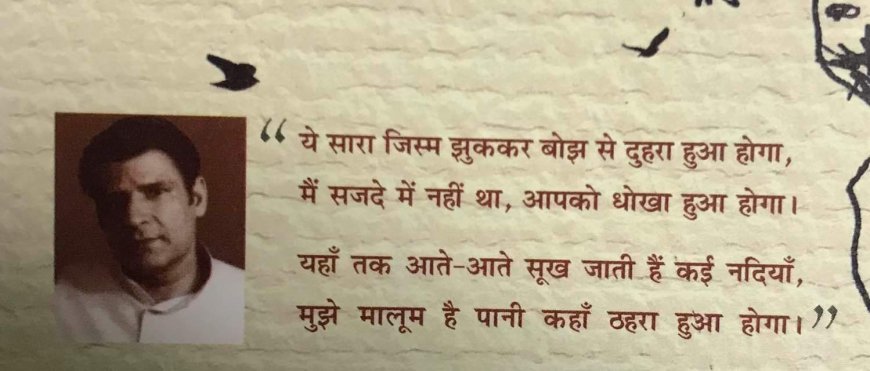 “ ये सारा जिस्म झुककर बोझ से दुहरा हुआ होगा,
मैं सजदे में नहीं था, आपको धोखा हुआ होगा।
यहाँ तक आते-आते सूख जाती हैं कई नदियाँ,
मुझे मालूम है पानी कहाँ ठहरा हुआ होगा। ”